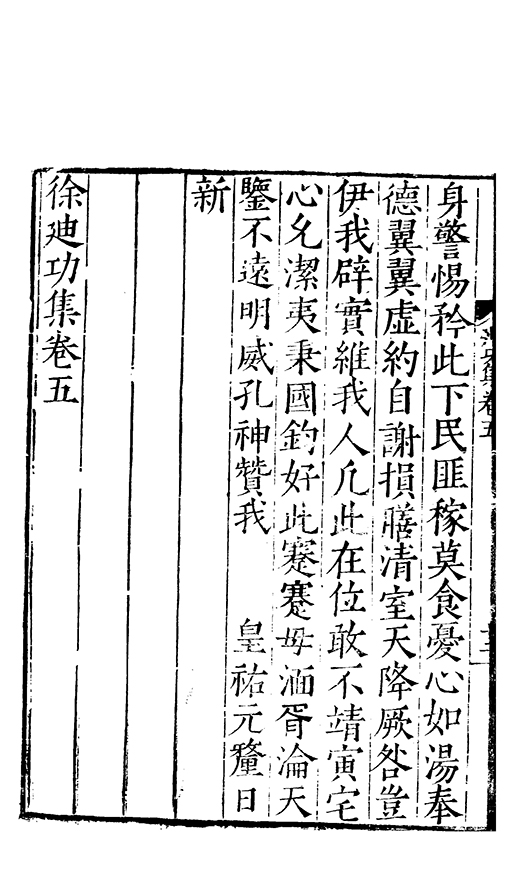 身警惕矜此下民匪稼莫食憂心如湯奉
德翼翼虛約自謝損膳清室天降厥咎豈
伊我辟實維我人凡此在位敢不靖寅宅
心允潔夷秉國鈞好此蹇蹇毋湎胥淪天
鑒不遠明威孔神贊我　　皇祐元釐日
新
徐迪功集卷五